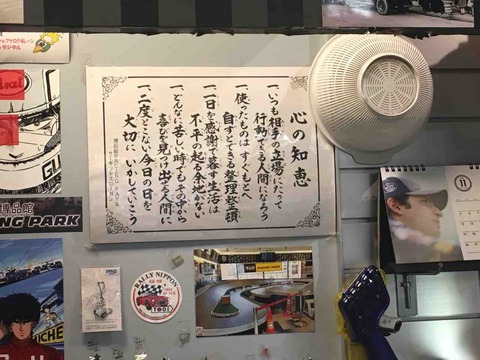 心の知恵
一、いつも相手の立場にたって
行動できる人間になろう
一、使ったものは すぐもとへ
自ずとできる 整理整頓
一、一日を感謝で暮す生活は
不平の起る余地がない
一、どんなに苦しい時でも その中から
喜びを見つけ出せる人間に
一、二度とこない今日の日を
大切に いかしていこう
11
博品館
RACING PARK
RALLY NIPPON